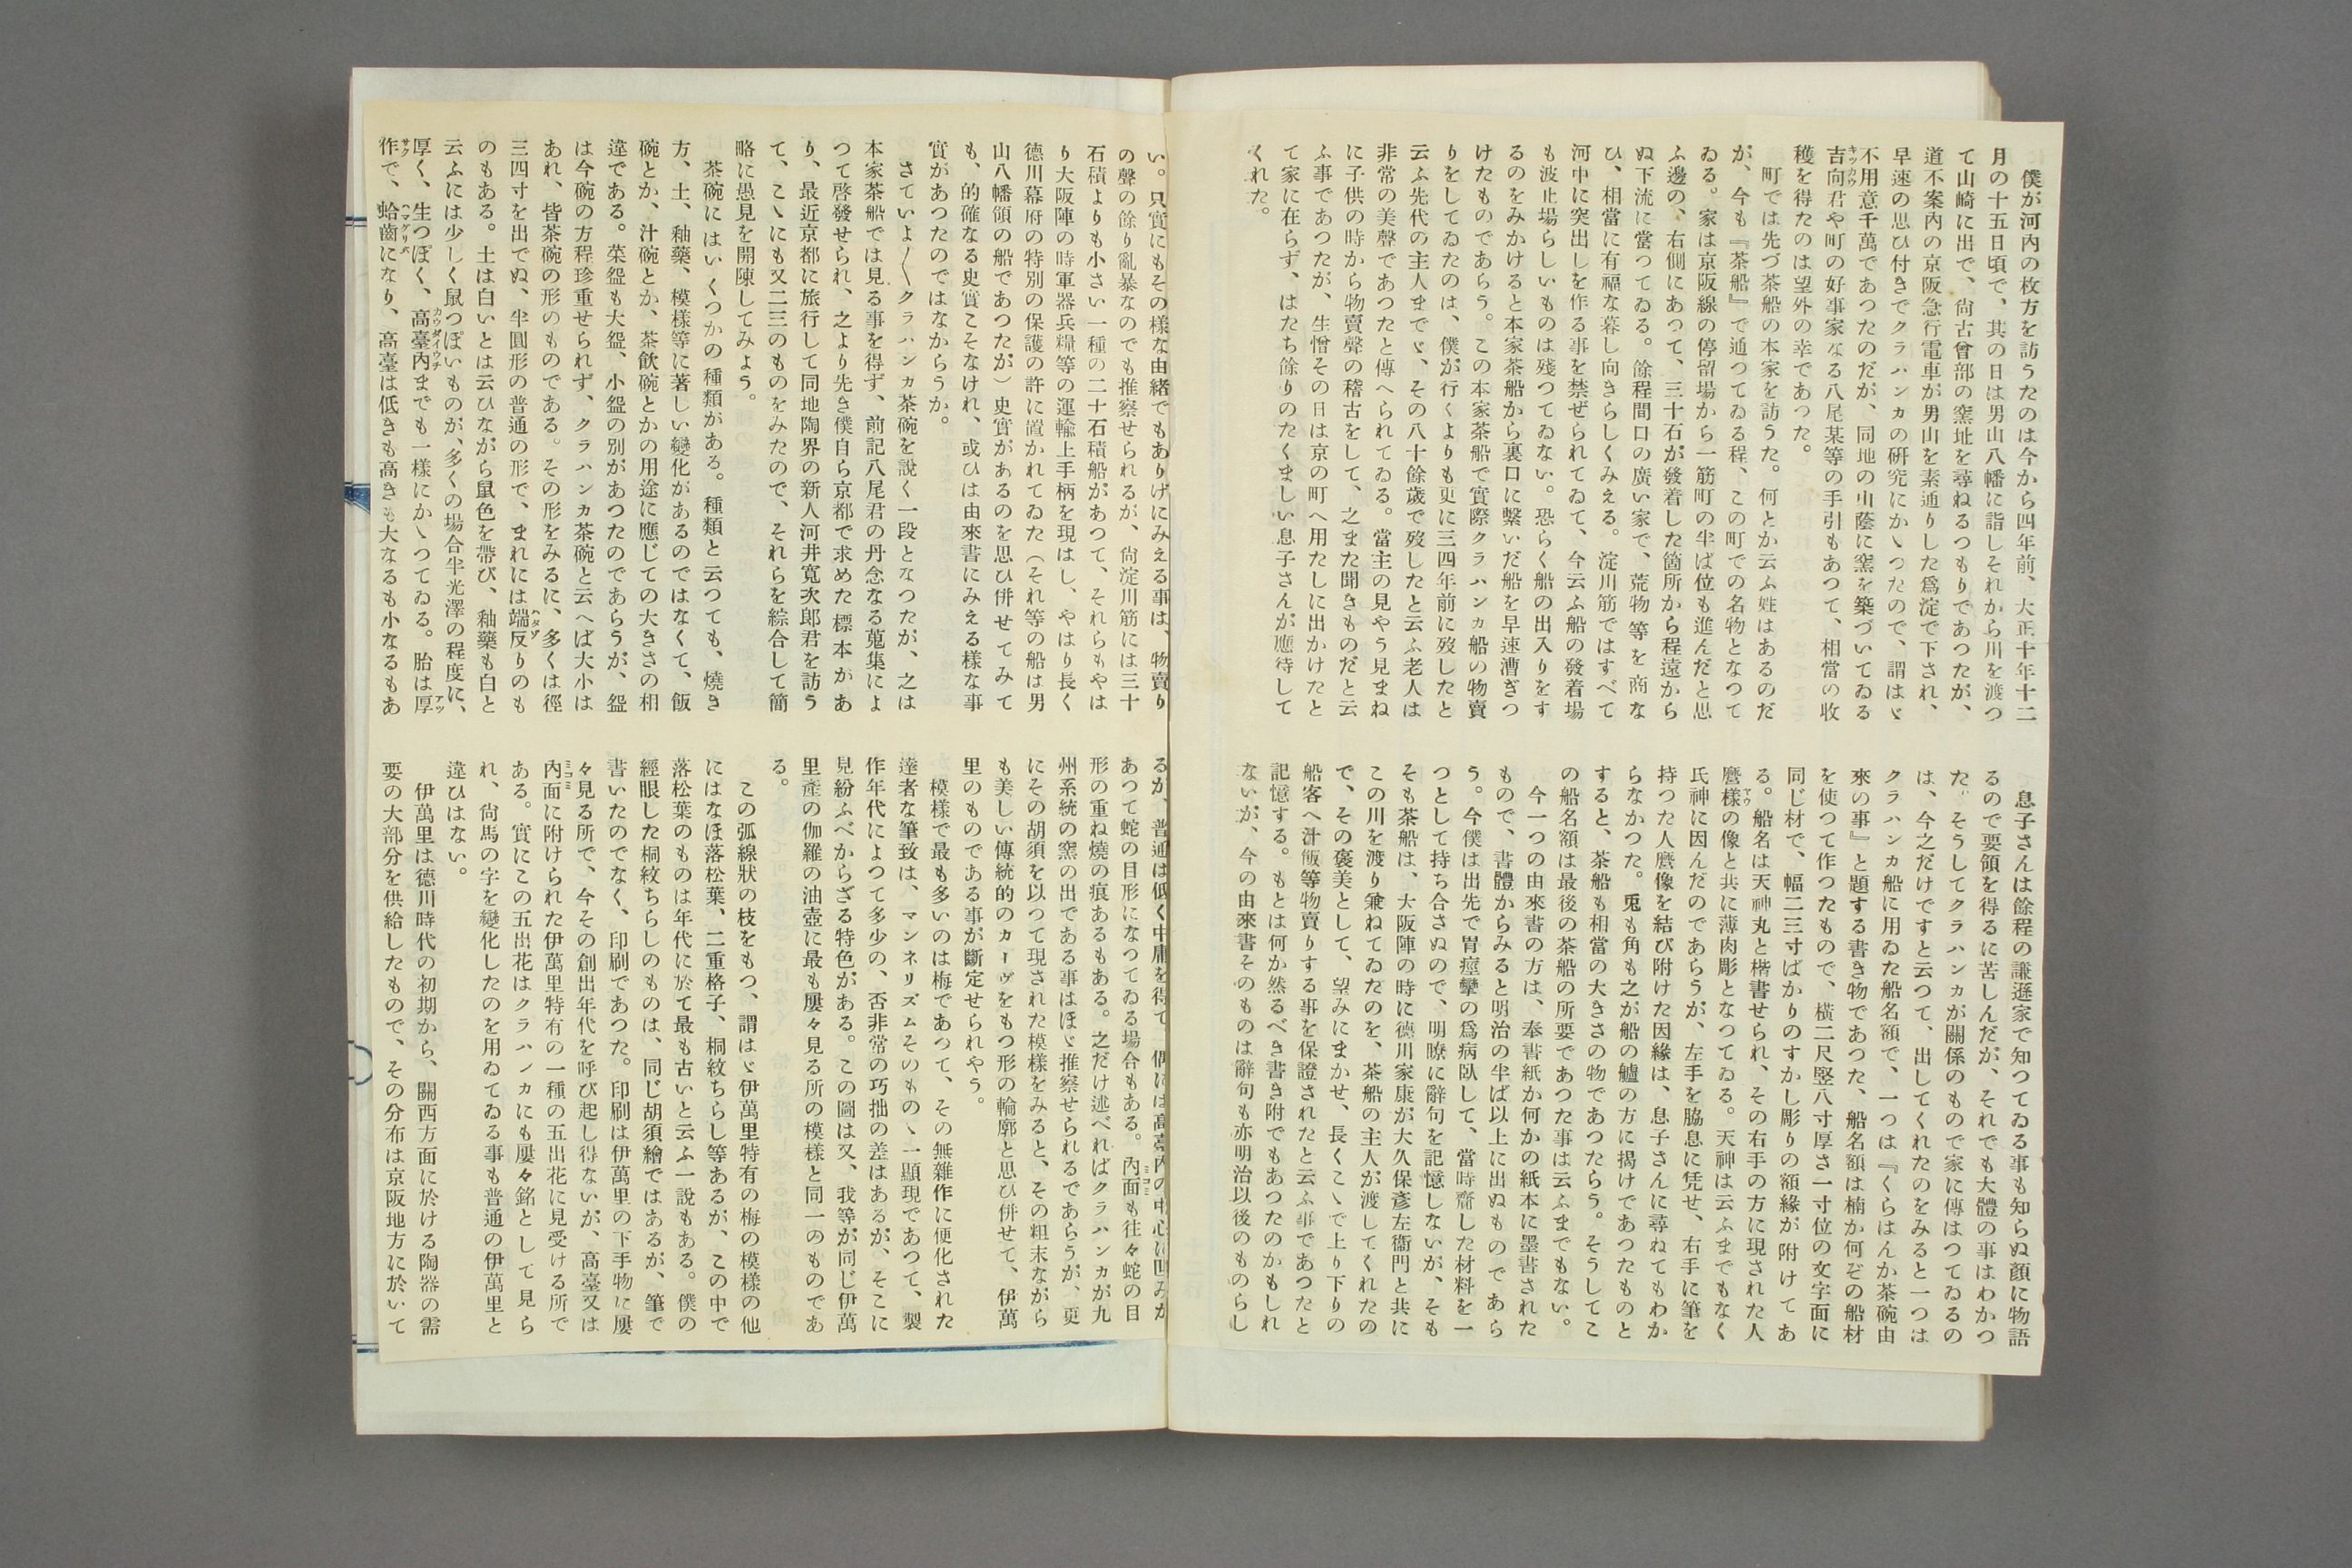 僕が河内の枚方を訪うたのは今から四年前、大正十年十二
月の十五日頃で、其の日は男山八幡に詣しそれから川を渡つ
て山崎に出で、尙古曾部の窯址を尋ねるつもりであつたが、
道不案內の京阪急行電車が男山を素通りした爲淀で下され、
早速の思ひ付きでクラハンカの硏究にかゝつたので、謂はゞ
不用意千萬であつたのだが、同地の山蔭に窯を築づいてゐる
吉向君や町の好事家なる八尾某等の手引もあつて、相當の收
穫を得たのは望外の幸であつた。
町では先づ茶船の本家を訪うた。何とか云ふ姓はあるのだ
が、今も『茶船』で通つてゐる程、この町での名物となつて
ゐる。家は京阪線の停留場から一筋町の半ば位も進んだと思
ふ邊の、右側にあつて、三十石が發着した箇所から程遠から
ぬ下流に當つてゐる。餘程間口の廣い家で、荒物等を商な
ひ、相當に有福な暮し向きらしくみえる。淀川筋ではすべて
河中に突出しを作る事を禁ぜられてゐて、今云ふ船の發着場
も波止場らしいものは殘つてゐない。恐らく船の出入りをす
るのをみかけると本家茶船から裏口に繋いだ船を早速漕ぎつ
けたものであらう。この本家茶船で實際クラハンカ船の物賣
りをしてゐたのは、僕が行くよりも更に三四年前に歿したと
云ふ先代の主人までゞ、その八十餘歲で歿したと云ふ老人は
非常の美聲であつたと傳へられてゐる。當主の見やう見まね
に子供の時から物賣聲の稽古をして、之また聞きものだと云
ふ事であつたが、生憎その日は京の町へ用たしに出かけたと
て家に在らず、はたち餘りのたくましい息子さんが應待して
くれた。
息子さんは餘程の謙遜家で知つてゐる事も知らぬ顏に物語
るので要領を得るに苦しんだが、それでも大體の事はわかつ
た。そうしてクラハンカが關係のもので家に傳はつてゐるの
は、今之だけですと云つて、出してくれたのをみると一つは
クラハンカ船に用ゐた船名額で、一つは『くらはんか茶碗由
來の事』と題する書き物であつた、船名額は楠か何ぞの船材
を使つて作つたもので、橫二尺竪八寸厚さ一寸位の文字面に
同じ材で、幅二三寸ばかりのすかし彫りの額緣が附けてあ
る。船名は天神丸と楷書せられ、その右手の方に現された人
麿樣の像と共に薄肉彫となつてゐる。天神は云ふまでもなく
氏神に因んだのであらうが、左手を脇息に凭せ、右手に筆を
持つた人麿像を結び附けた因緣は、息子さんに尋ねてもわか
らなかつた。兎も角も之が船の艫の方に揭げてあつたものと
すると、茶船も相當の大きさの物であつたらう。そうしてこ
の船名額は最後の茶船の所要であつた事は云ふまでもない。
今一つの由來書の方は、奉書紙か何かの紙本に墨書された
もので、書體からみると明治の半ば以上に出ぬものであら
う。今僕は出先で胃痙攣の爲病臥して、當時齋した材料を一
つとして持ち合さぬので、明瞭に辭句を記憶しないが、そも
そも茶船は、大阪陣の時に德川家康が大久保彥左衞門と共に
この川を渡り兼ねてゐたのを、茶船の主人が渡してくれたの
で、その褒美として、望みにまかせ、長くこゝで上り下りの
船客へ汁飯等物賣りする事を保證されたと云ふ事であつたと
記憶する。もとは何か然るべき書き附でもあつたのかもしれ
ないが、今の由來書そのものは辭句も亦明治以後のものらし
い。只實にもその樣な由緖でもありげにみえる事は、物賣り
の聲の餘り亂暴なのでも推察せられるが、尙淀川筋には三十
石積よりも小さい一種の二十石積船があつて、それらもやは
り大阪陣の時軍器兵糧等の運輸上手柄を現はし、やはり長く
德川幕府の特別の保護の許に置かれてゐた（それ等の船は男
山八幡領の船であつたが）史實があるのを思ひ併せてみて
も、的確なる史實こそなけれ、或ひは由來書にみえる樣な事
實があつたのではなからうか。
さていよ〳〵クラハンカ茶碗を說く一段となつたが、之は
本家茶船では見る事を得ず、前記八尾君の丹念なる蒐集によ
つて啓發せられ、之より先き僕自ら京都で求めた標本があ
り、最近京都に旅行して同地陶界の新人河井寬次郎君を訪う
て、こゝにも又二三のものをみたので、それらを綜合して簡
略に愚見を開陳してみよう。
茶碗にはいくつかの種類がある。種類と云つても、燒き
方、土、釉藥、模樣等に著しい變化があるのではなくて、飯
碗とか、汁碗とか、茶飮碗とかの用途に應じての大きさの相
違である。菜盌も大盌、小盌の別があつたのであらうが、盌
は今碗の方程珍重せられず、クラハンカ茶碗と云へば大小は
あれ、皆茶碗の形のものである。その形をみるに、多くは徑
三四寸を出でぬ、半圓形の普通の形で、まれには端反りのも
のもある。土は白いとは云ひながら鼠色を帶び、釉藥も白と
云ふには少しく鼠つぽいものが、多くの場合半光澤の程度に、
厚く、生つぽく、高臺內までも一樣にかゝつてゐる。胎は厚
作で、蛤齒になり、高臺は低きも高きも大なるも小なるもあ
るが、普通は低く中庸を得て、偶には高臺內の中心に凹みが
あつて蛇の目形になつてゐる場合もある。內面も往々蛇の目
形の重ね燒の痕あるもある。之だけ述べればクラハンカが九
州系統の窯の出である事はほゞ推察せられるであらうが、更
にその胡須を以つて現された模樣をみると、その粗末ながら
も美しい傳統的のカーヴをもつ形の輪廓と思ひ併せて、伊萬
里のものである事が斷定せられやう。
模樣で最も多いのは梅であつて、その無雜作に便化された
達者な筆致は、マンネリズムそのものゝ一顯現であつて、製
作年代によつて多少の、否非常の巧拙の差はあるが、そこに
見紛ふべからざる特色がある。この圖は又、我等が同じ伊萬
里產の伽羅の油壺に最も屢々見る所の模樣と同一のものであ
る。
この弧線狀の枝をもつ、謂はゞ伊萬里特有の梅の模樣の他
にはなほ落松葉、二重格子、桐紋ちらし等あるが、この中で
落松葉のものは年代に於て最も古いと云ふ一說もある。僕の
經眼した桐紋ちらしのものは、同じ胡須繪ではあるが、筆で
書いたのでなく、印刷であつた。印刷は伊萬里の下手物に屢
々見る所で、今その創出年代を呼び起し得ないが、高臺又は
內面に附けられた伊萬里特有の一種の五出花に見受ける所で
ある。實にこの五出花はクラハンカにも屢々銘として見ら
れ、尙馬の字を變化したのを用ゐてゐる事も普通の伊萬里と
違ひはない。
伊萬里は德川時代の初期から、關西方面に於ける陶器の需
要の大部分を供給したもので、その分布は京阪地方に於いて